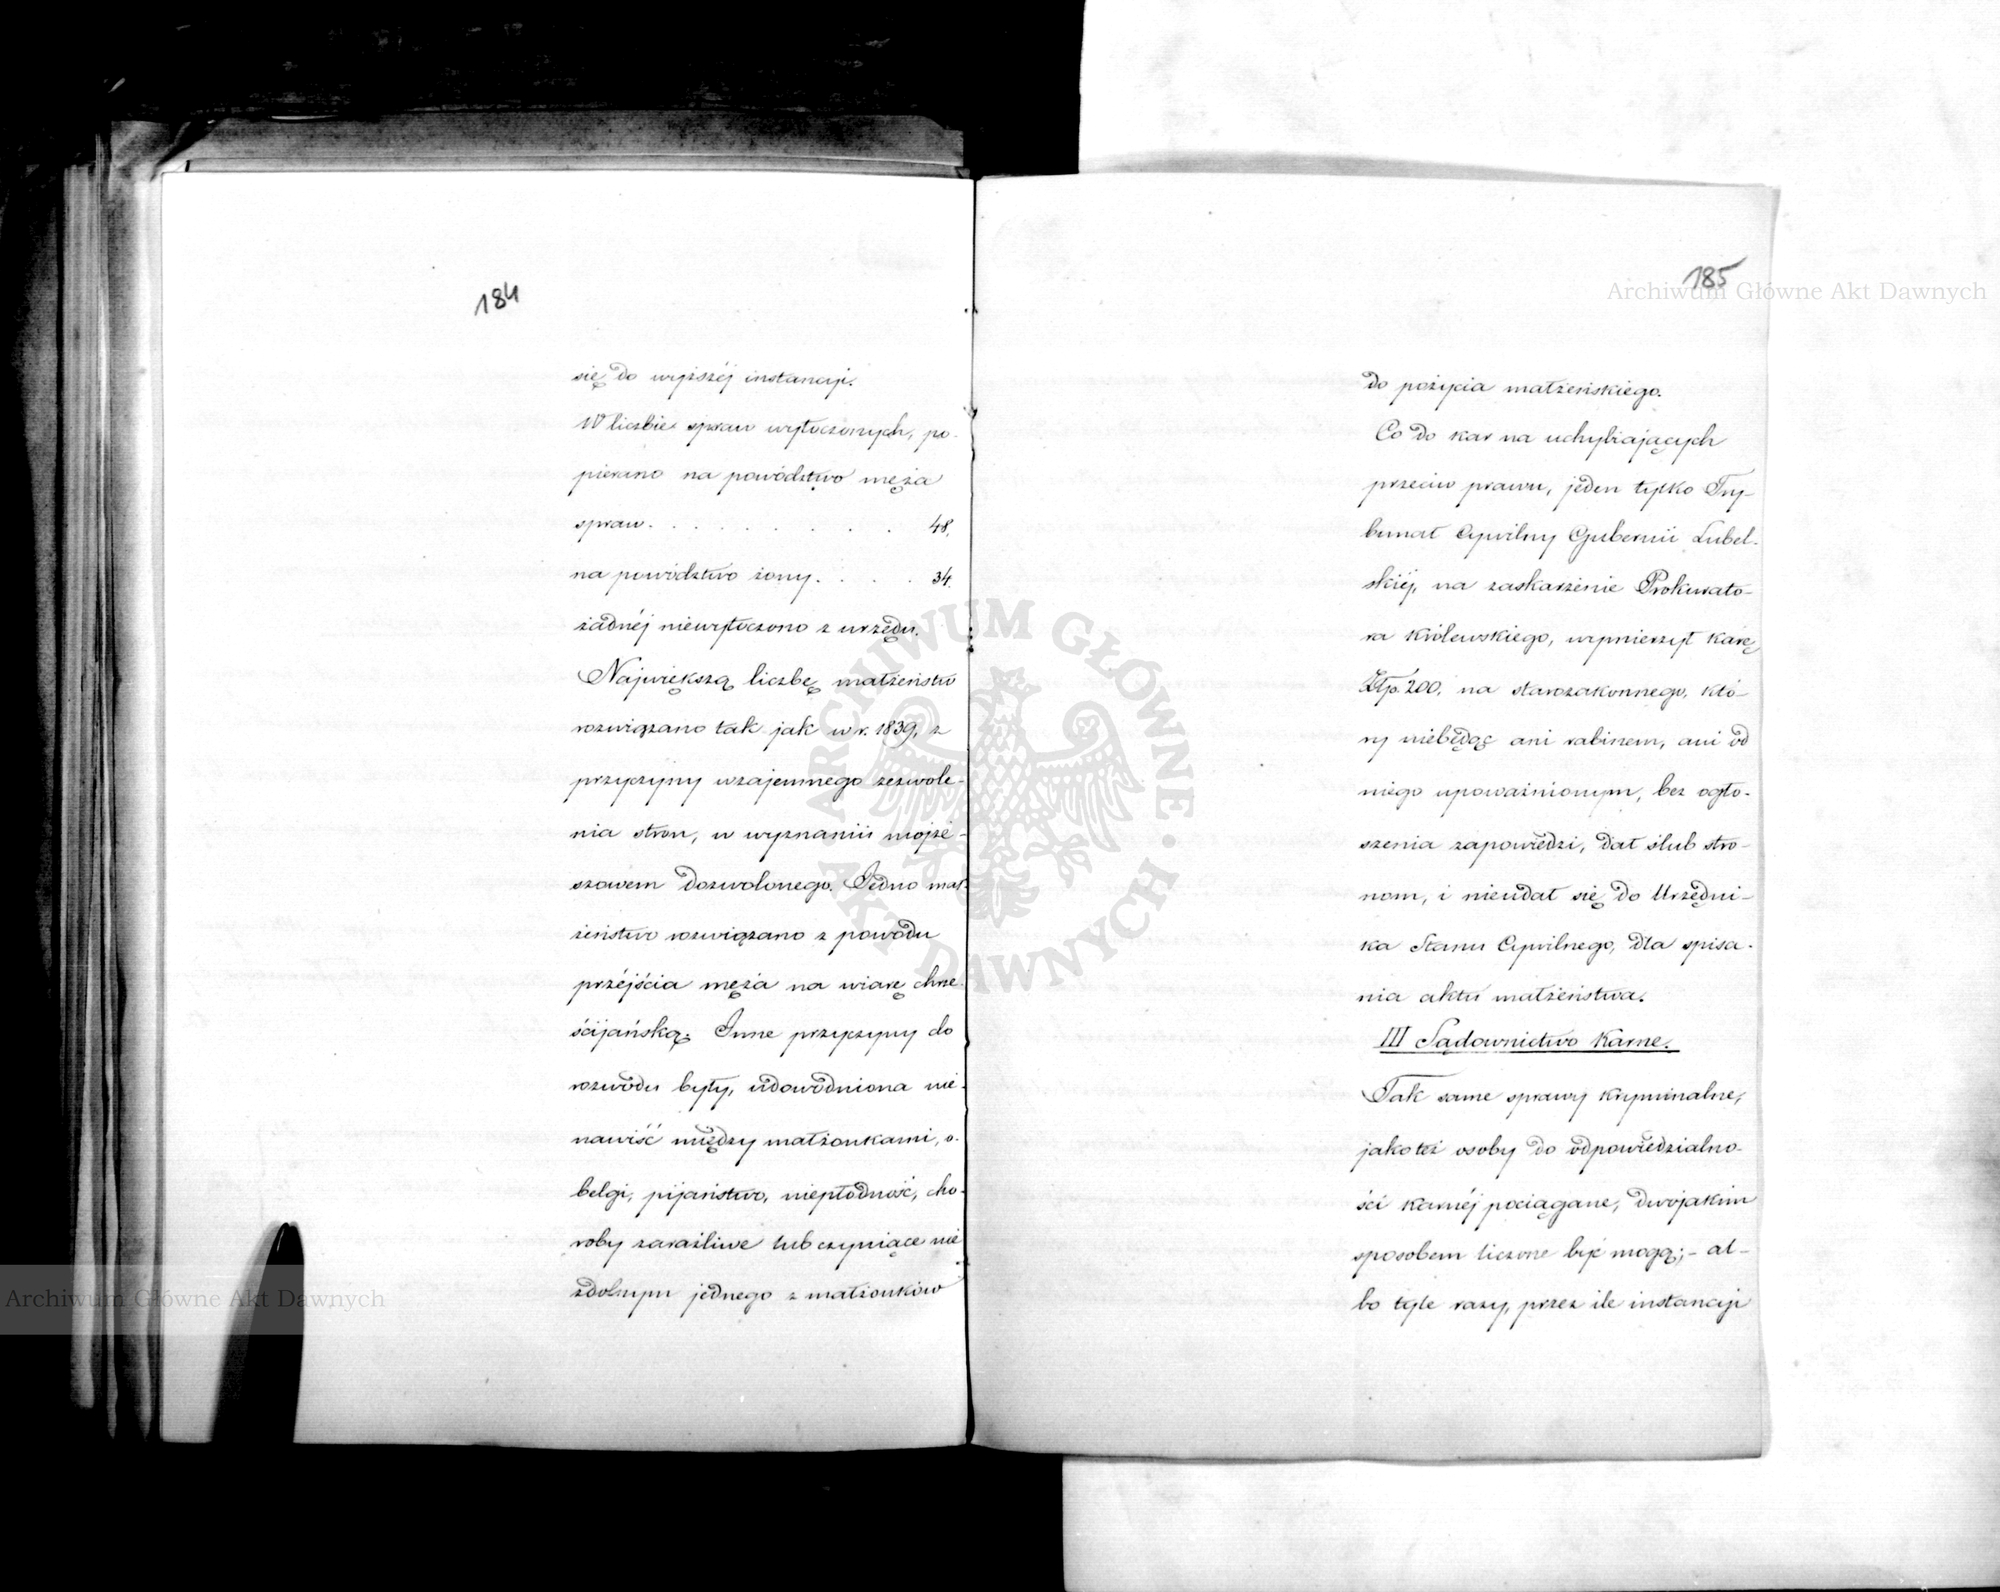 184
się do wyższéj instancyi.
W liczbie spraw wytoczonych, po-
pierano na powództwo męża
spraw. . . . . . . . . 48.
na powództwo żony. . . . 34.
żadnéj niewytoczono z urzędu.
Największą liczbę małżeństw
rozwiązano tak jak w r. 1839, z
przyczyny wzajemnego zezwole-
nia stron, w wyznaniu mojże-
szowem dozwolonego. Jedno mał-
żeństwo rozwiązano z powodu
przéjścia męża na wiarę chrze-
ścijańską. Inne przyczyny do
rozwodu były, udowodniona nie-
nawiść między małżonkami, o-
belgi, pijaństwo, niepłodność, cho-
roby zaraźliwe lub czyniące nie
zdolnym jednego z małżonków
185
do pożycia małżeńskiego.
Co do kar na uchybiających
przeciw prawu, jeden tylko Try-
bunał Cywilny Gubernii Lubel-
skiéj, na zaskarżenie Prokurato-
ra Królewskiego, wymierzył karę
Złp. 200, na starozakonnego, któ-
ry niebędąc ani rabinem, ani od
niego upoważnionym, bez ogło-
szenia zapowiedzi, dał ślub stro-
nom, i nieudał się do Urzędni-
ka Stanu Cywilnego, dla spisa-
nia aktu małżeństwa.
III Sądownictwo Karne.
Tak same sprawy kryminalne,
jakoteż osoby do odpowiedzialno-
ści karnéj pociągane, dwojakim
sposobem liczone być mogą;- al-
bo tyle razy, przez ile instancyi
Archiwum Główne Akt Dawnych
Archiwum Główne Akt Dawnych
ARCHIWUM GŁÓWNE AKT DAWNYCH